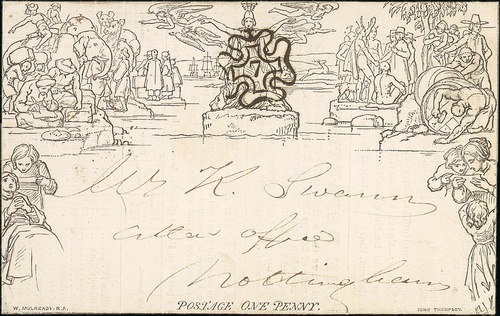 7
Mr K. Swann
office
Nottingham
POSTAGE ONE PENNY.
W. MULREADY. R.A.
JOHN THOMPSON.